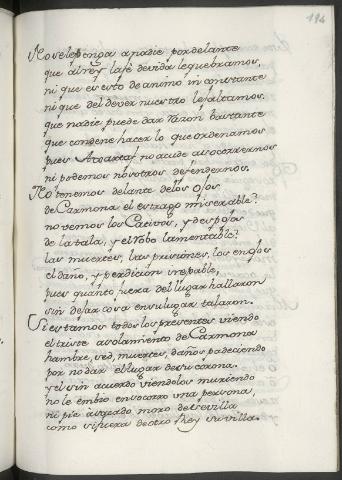 194
No se le ponga a nadie por delante
que al rey la fè devida le quebramos,
ni que es esto de animo inconstante
ni que del dever nuestro le faltamos.
que nadie puede dar razon bastante
que condene hacer lo que ordenamos
pues Axataf no acude a socorrernos
ni podemos nosotros defendernos.
No tenemos delante de los ojos
de Carmona el estrago miserable?
no vemos los Cativos, y despojos
de la tala, y el robo lamentable?
las muertes, las prisiones, los enojos
el daño, y perdicion
pues quanto fuera del lugar hallaron
sin dejar cosa en su lugar talaron.
Si estamos todos los presentes viendo
el triste asolamiento de Carmona
hambre, sed, muertes, daños padeciendo
por no dar el lugar de su corona.
y el sin acuerdo viendolos muriendo
no le embio en socorro una persona,
ni pie à su grado moro de Sevilla
como si fuera de otro Rey su villa.